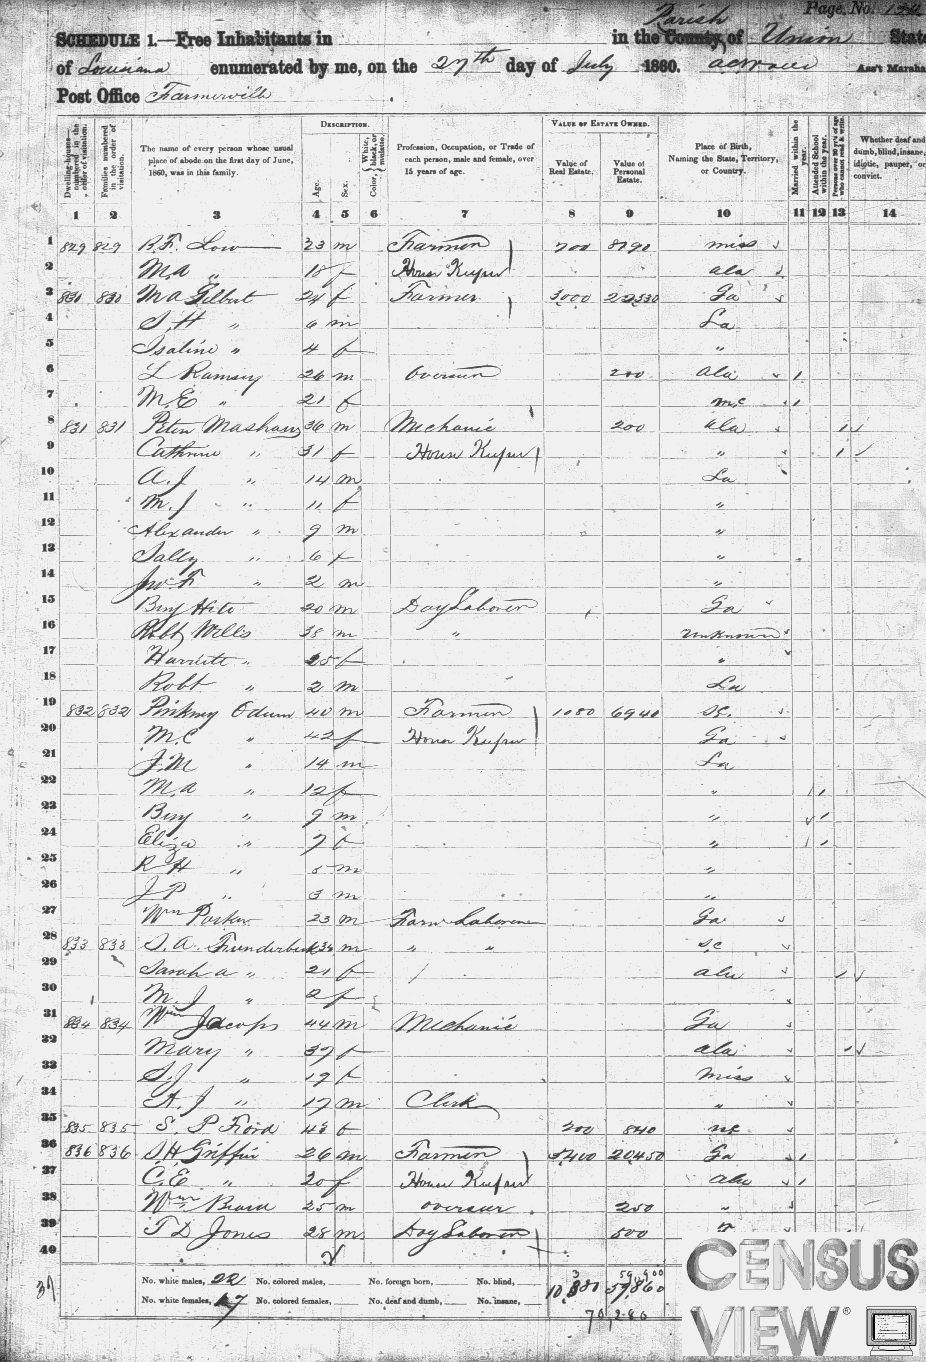 Page. No.
SCHEDULE 1.—Free Inhabitants in in the County of Parish Union State
of Louisiana enumerated by me, on the 27th day of July 1860. Ass't Marshal
Post Office Farmerville
Dwelling-houses—numbered in the order of visitation.
Families numbered in the order of visitation.
The name of every person whose usual place of abode on the first day of June, 1860, was in this family.
DESCRIPTION.
Age.
Sex.
Color, {White, black, or mulatto.
Profession, Occupation, or Trade of each person, male and female, over 15 years of age.
VALUE OF ESTATE OWNED.
Value of Real Estate.
Value of Personal Estate.
Place of Birth, Naming the State, Territory, or Country.
Married within the year.
Attended School within the year.
Persons over 20 y'rs of age who cannot read & write.
Whether deaf and dumb, blind, insane, idiotic, pauper, or convict.
1 2 3 4 5 6 7 8 9 10 11 12 13 14
1 829 829 B.F. Low 23 m Farmer 700 8790 miss
2 M.A " 18 f House Keeper ala
3 830 830 M A Gilbert 24 f Farmer 3000 Ga
4 S.H " 6 m La
5 Isaline " 4 f "
6 L Ramsey 26 m Overseer 200 Ala 1
7 M.E " 21 f 1
8 831 831 36 m Mechanic 200 Ala 1
9 Cathrine " 31 f House Keeper " 1
10 A.J " 14 m La
11 M.J " 11 f "
12 Alexander " 9 m "
13 Sally " 6 f "
14 " 2 m "
15 20 m Day Laborer Ga
16 Robt Wells 38 m " unknown
17 Harriett " 25 f "
18 Robt " 2 m La
19 832 832 Pinkney Odum 40 m Farmer 1080 6940 SC.
20 M.C " 42 f House Keeper Ga
21 J.M " 14 m La
22 M.A " 12 f " 1
23 Benj " 9 m " 1
24 Eliza " 7 f " 1
25 R H " 5 m "
26 J P " 3 m "
27 Wm Parker 23 m Farm Laborer Ga
28 833 833 S. A. Funderburk m " " SC
29 Sarah A " 21 f / ala 1
30 M. J " 2 f
31 834 834 Wm Jacops 44 m Mechanic Ga
32 Mary " 37 f ala 1
33 S.J " 19 f Miss
34 A. J " 17 m Clerk "
35 835 835 S. P Ford f 200 840 nc
36 836 836 S H Griffin 26 m Farmer 20450 Ga 1
37 C.E " 20 f House Keeper ala 1
38 Wm Beard 25 m overseer 250 "
39 T D Jones 28 m Day Laborer 500
40
No. white males, 22 No. colored males, No. foreign born, No. blind,
No. white females, 17 No. colored females, No. deaf and dumb, No. insane,
CENSUS
VIEW ®